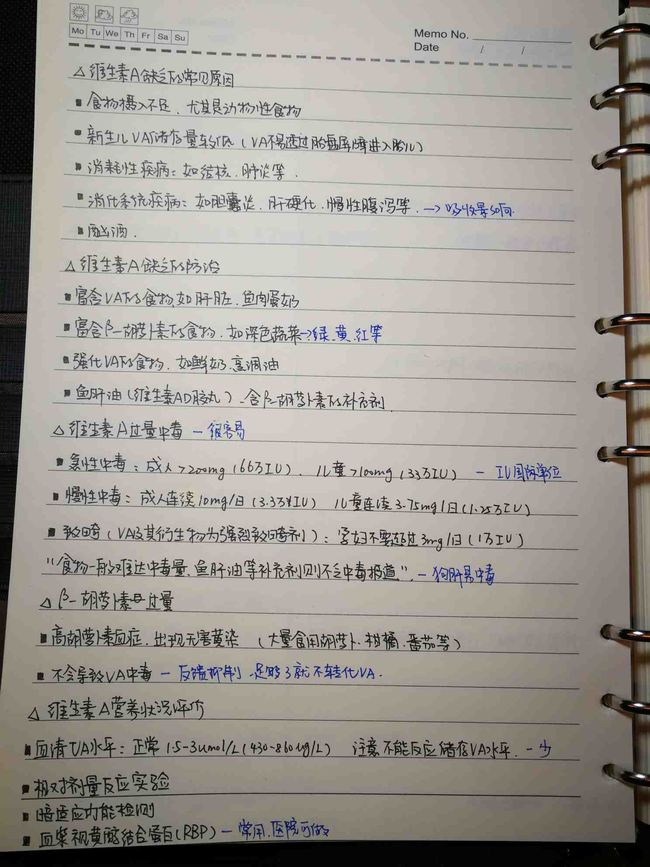 Mo Tu We Th Fr Sa Su
Memo No.
Date / /
△ 维生素A缺乏的常见原因
■ 食物摄入不足，尤其是动物性食物
■ 新生儿VA储存量较低（VA不易透过胎盘屏障进入胎儿）
■ 消耗性疾病：如结核、肺炎等．
■ 消化系统疾病：如胆囊炎、肝硬化、慢性腹泻等．→吸收影响
■ 酗酒．
△ 维生素A缺乏的防治
■ 富含VA的食物，如肝脏、鱼肉蛋奶
■ 富含β-胡萝卜素的食物，如深色蔬菜→绿、黄、红等
■ 强化VA的食物，如鲜奶、烹调油
■ 鱼肝油（维生素AD胶丸）、含β-胡萝卜素的补充剂．
△ 维生素A过量中毒 — 很容易
■ 急性中毒：成人>200mg（66万IU）．儿童>100mg（33万IU） — IU国际单位
■ 慢性中毒：成人连续10mg/日（3.3万IU） 儿童连续3.75mg/日（1.25万IU）
■ 致畸（VA及其衍生物为强烈致畸剂）：孕妇不要超过3mg/日（1万IU）
“食物一般难达中毒量，鱼肝油等补充剂则不乏中毒报道”．— 狗肝易中毒
△ β-胡萝卜素 过量
■ 高胡萝卜素血症，出现无害黄染 （大量食用胡萝卜、柑橘、番茄等）
■ 不会导致VA中毒 — 反馈抑制．足够了就不转化VA．
△ 维生素A营养状况评价
■ 血清VA水平：正常1.5-3umol/L（430-860ug/L） 注意不能反应储存VA水平．— 少
■ 相对剂量反应实验
■ 暗适应功能检测
■ 血浆视黄醇结合蛋白（RBP）— 常用．医院可做